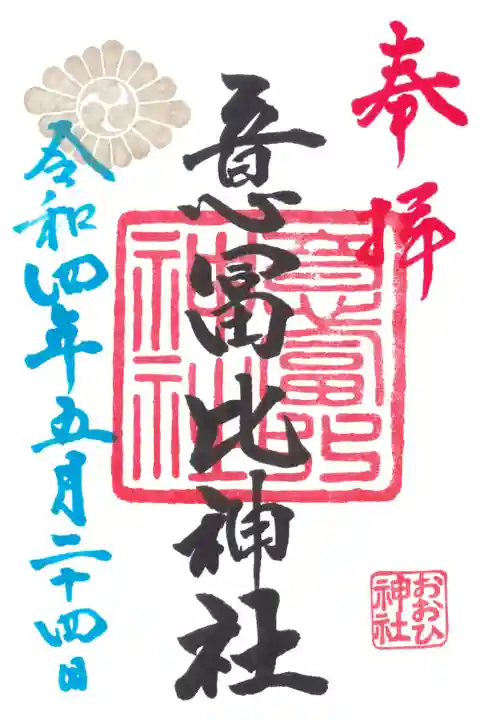 奉拝
意富比神社
令和四年五月二十四日
おおひ
神社